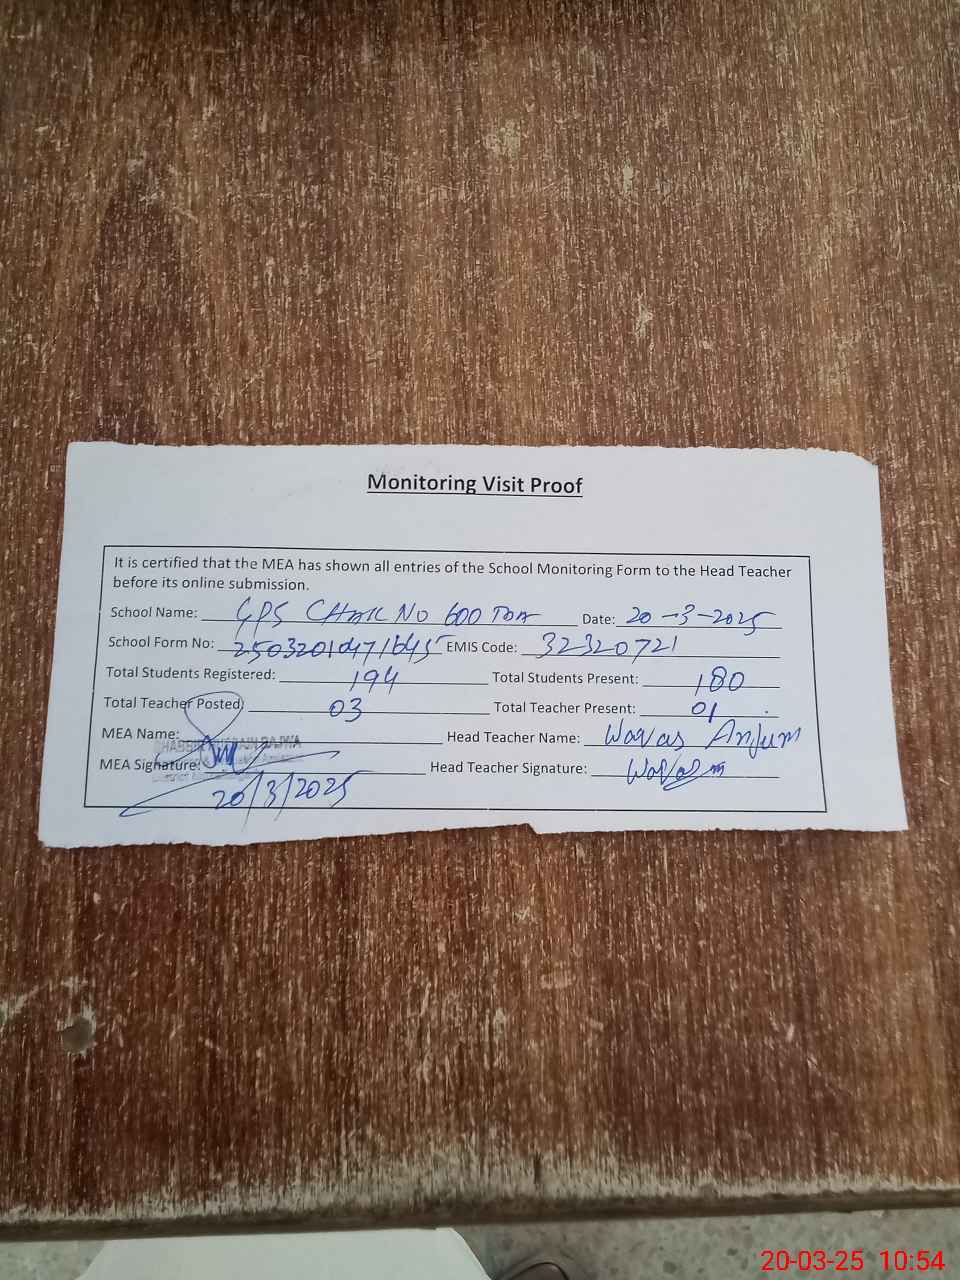 Monitoring Visit Proof
It is certified that the MEA has shown all entries of the School Monitoring Form to the Head Teacher
before its online submission.
School Name: GPS CHAK NO 600 TDA Date: 20-3-2025
School Form No: 25032010471645 EMIS Code: 32320721
Total Students Registered: 194 Total Students Present: 180
Total Teacher Posted: 03 Total Teacher Present: 01
MEA Name: Head Teacher Name: Waqas Anjum
MEA Signature: Head Teacher Signature: Waqas
20/3/2025
20-03-25 10:54